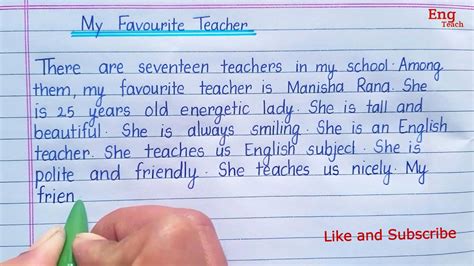 Eng
Teach
My Favourite Teacher
There are seventeen teachers in my school. Among
them, my favourite teacher is Manisha Rana. She
is 25 years old energetic lady. She is tall and
beautiful. She is always smiling. She is an English
teacher. She teaches us English subject. She is
polite and friendly. She teaches us nicely. My
frien
Like and Subscribe